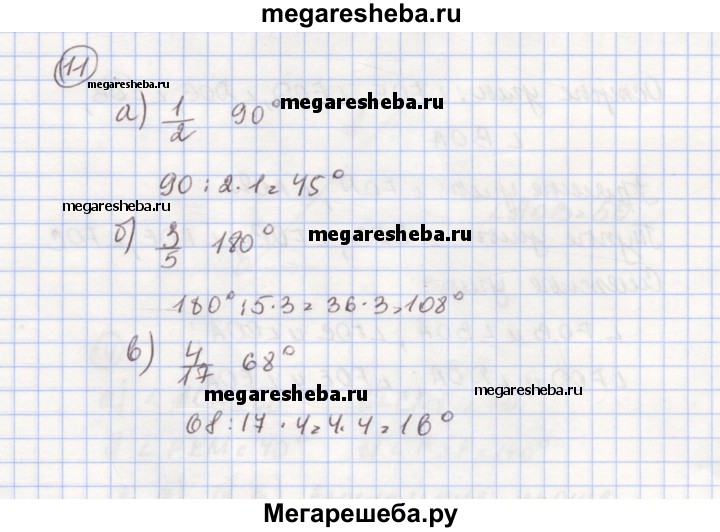 megaresheba.ru
11
megaresheba.ru
а) 1/2 90° megaresheba.ru
90 : 2 · 1 = 45°
megaresheba.ru
б) 3/5 180° megaresheba.ru
180° : 5 · 3 = 36 · 3 = 108°
в) 4/17 68°
megaresheba.ru megaresheba.ru
68 : 17 · 4 = 4 · 4 = 16°
Мегарешеба.ру